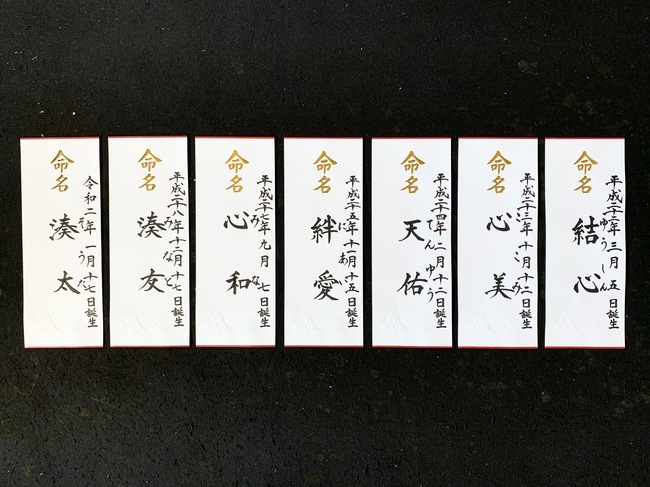 平成二十二年 三月 五日誕生
ゆうしん
命名 結心
平成二十三年 十月 十二日誕生
ここみ
命名 心美
平成二十四年 二月 十二日誕生
てんゆう
命名 天佑
平成二十五年 十一月 十五日誕生
にあい
命名 絆愛
平成二十七年 九月 七日誕生
みな
命名 心和
平成二十八年 十二月 十七日誕生
みなと
命名 湊友
令和二年 一月 十七日誕生
そうた
命名 湊太